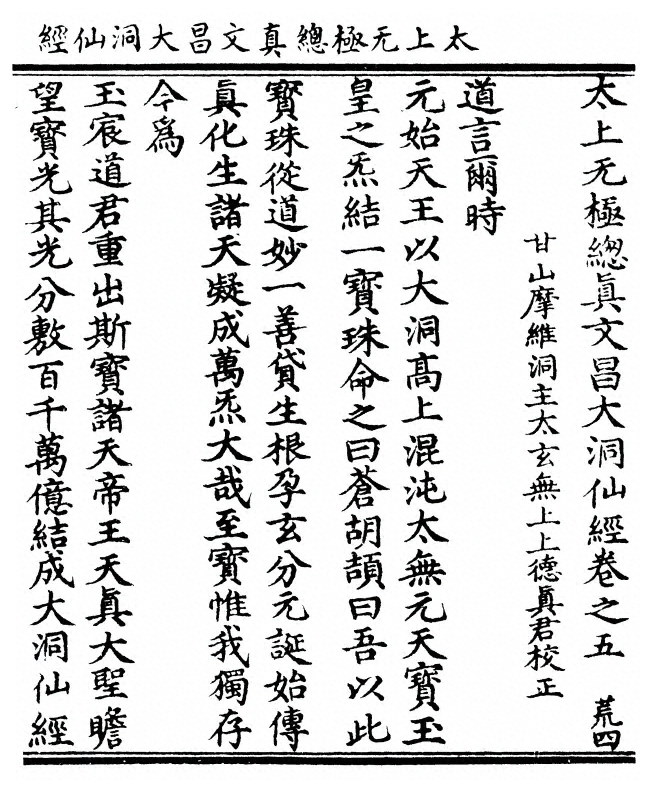 太上无極總真文昌大洞仙經
太上无極總眞文昌大洞仙經卷之五 荒四
甘山摩維洞主太玄無上上德眞君校正
道言爾時
元始天王以大洞高上混沌太無元天寶玉
皇之炁結一寶珠命之曰蒼胡頡曰吾以此
寳珠從道妙一善貸生根孕玄分元誕始傳
眞化生諸天凝成萬炁大哉至寳惟我獨存
今爲
玉宸道君重出斯寳諸天帝王天眞大聖瞻
望寳光其光分敷百千萬億結成大洞仙經